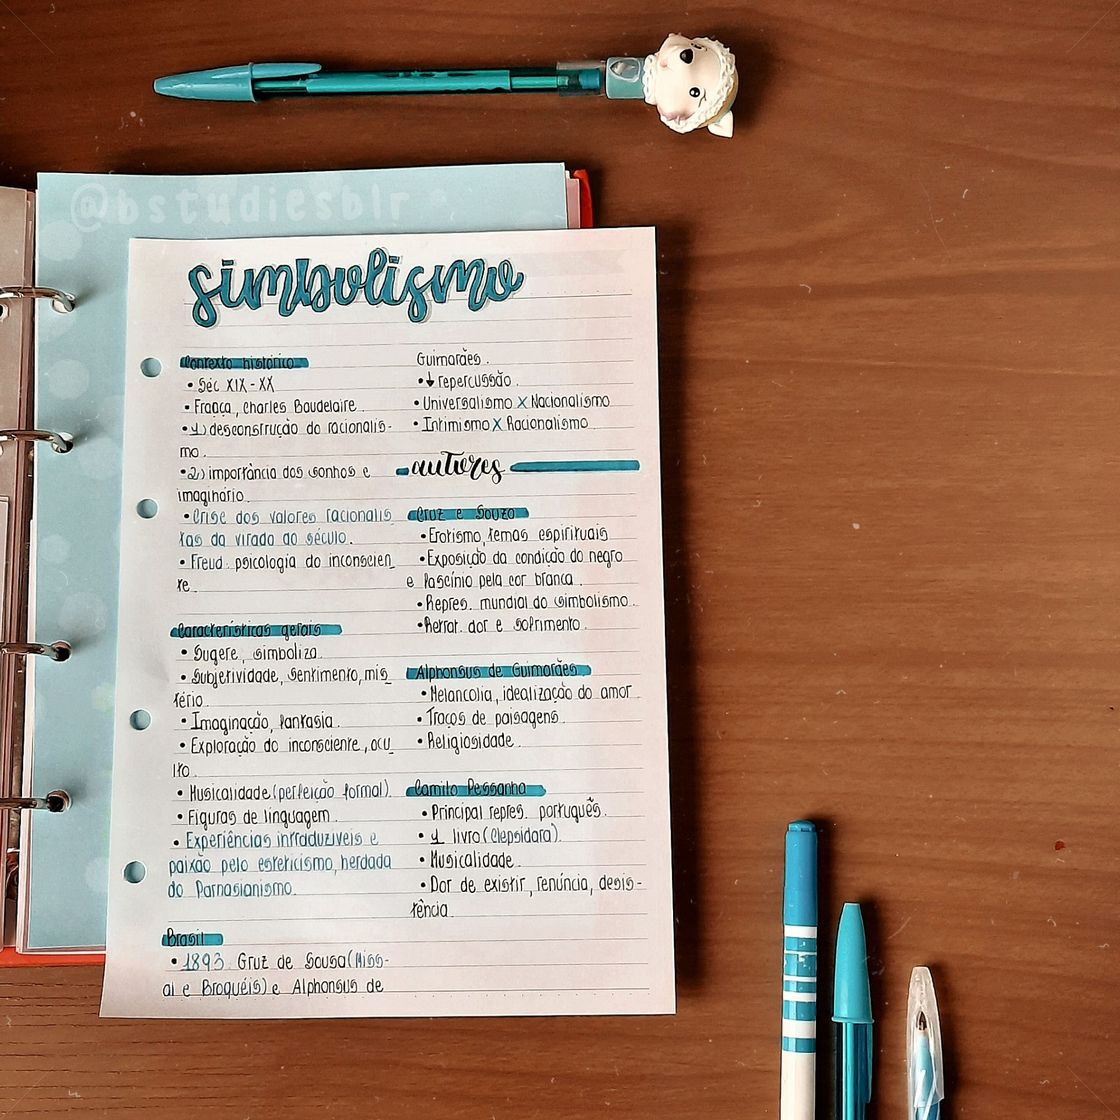 @bstudiesblr
simbolismo
Contexto histórico
• Séc XIX - XX
• França, Charles Baudelaire.
• 1) desconstrução do racionalis-
mo.
• 2) importância dos sonhos e
imaginário.
• Crise dos valores racionalis
tas da virada do século.
• Freud: psicologia do inconscien_
te.
Características gerais
• Sugere, simboliza.
• Subjetividade, sentimento, mis_
tério.
• Imaginação, fantasia.
• Exploração do inconsciente, ocu_
lto.
• Musicalidade (perfeição formal).
• Figuras de linguagem.
• Experiências intraduzíveis e
paixão pelo esteticismo, herdada
do Parnasianismo.
Brasil
• 1893: Cruz de Sousa (Miss-
al e Broquéis) e Alphonsus de
Guimarães.
• ↓ repercussão.
• Universalismo X Nacionalismo
• Intimismo X Racionalismo.
autores
Cruz e Souza
• Erotismo, temas espirituais
• Exposição da condição do negro
e fascínio pela cor branca.
• Repres. mundial do simbolismo.
• Retrat. dor e sofrimento.
Alphonsus de Guimarães
• Melancolia, idealização do amor.
• Traços de paisagens.
• Religiosidade.
Camilo Pessanha
• Principal repres. português.
• 1 livro (Clepsidara).
• Musicalidade.
• Dor de existir, renúncia, desis-
tência.